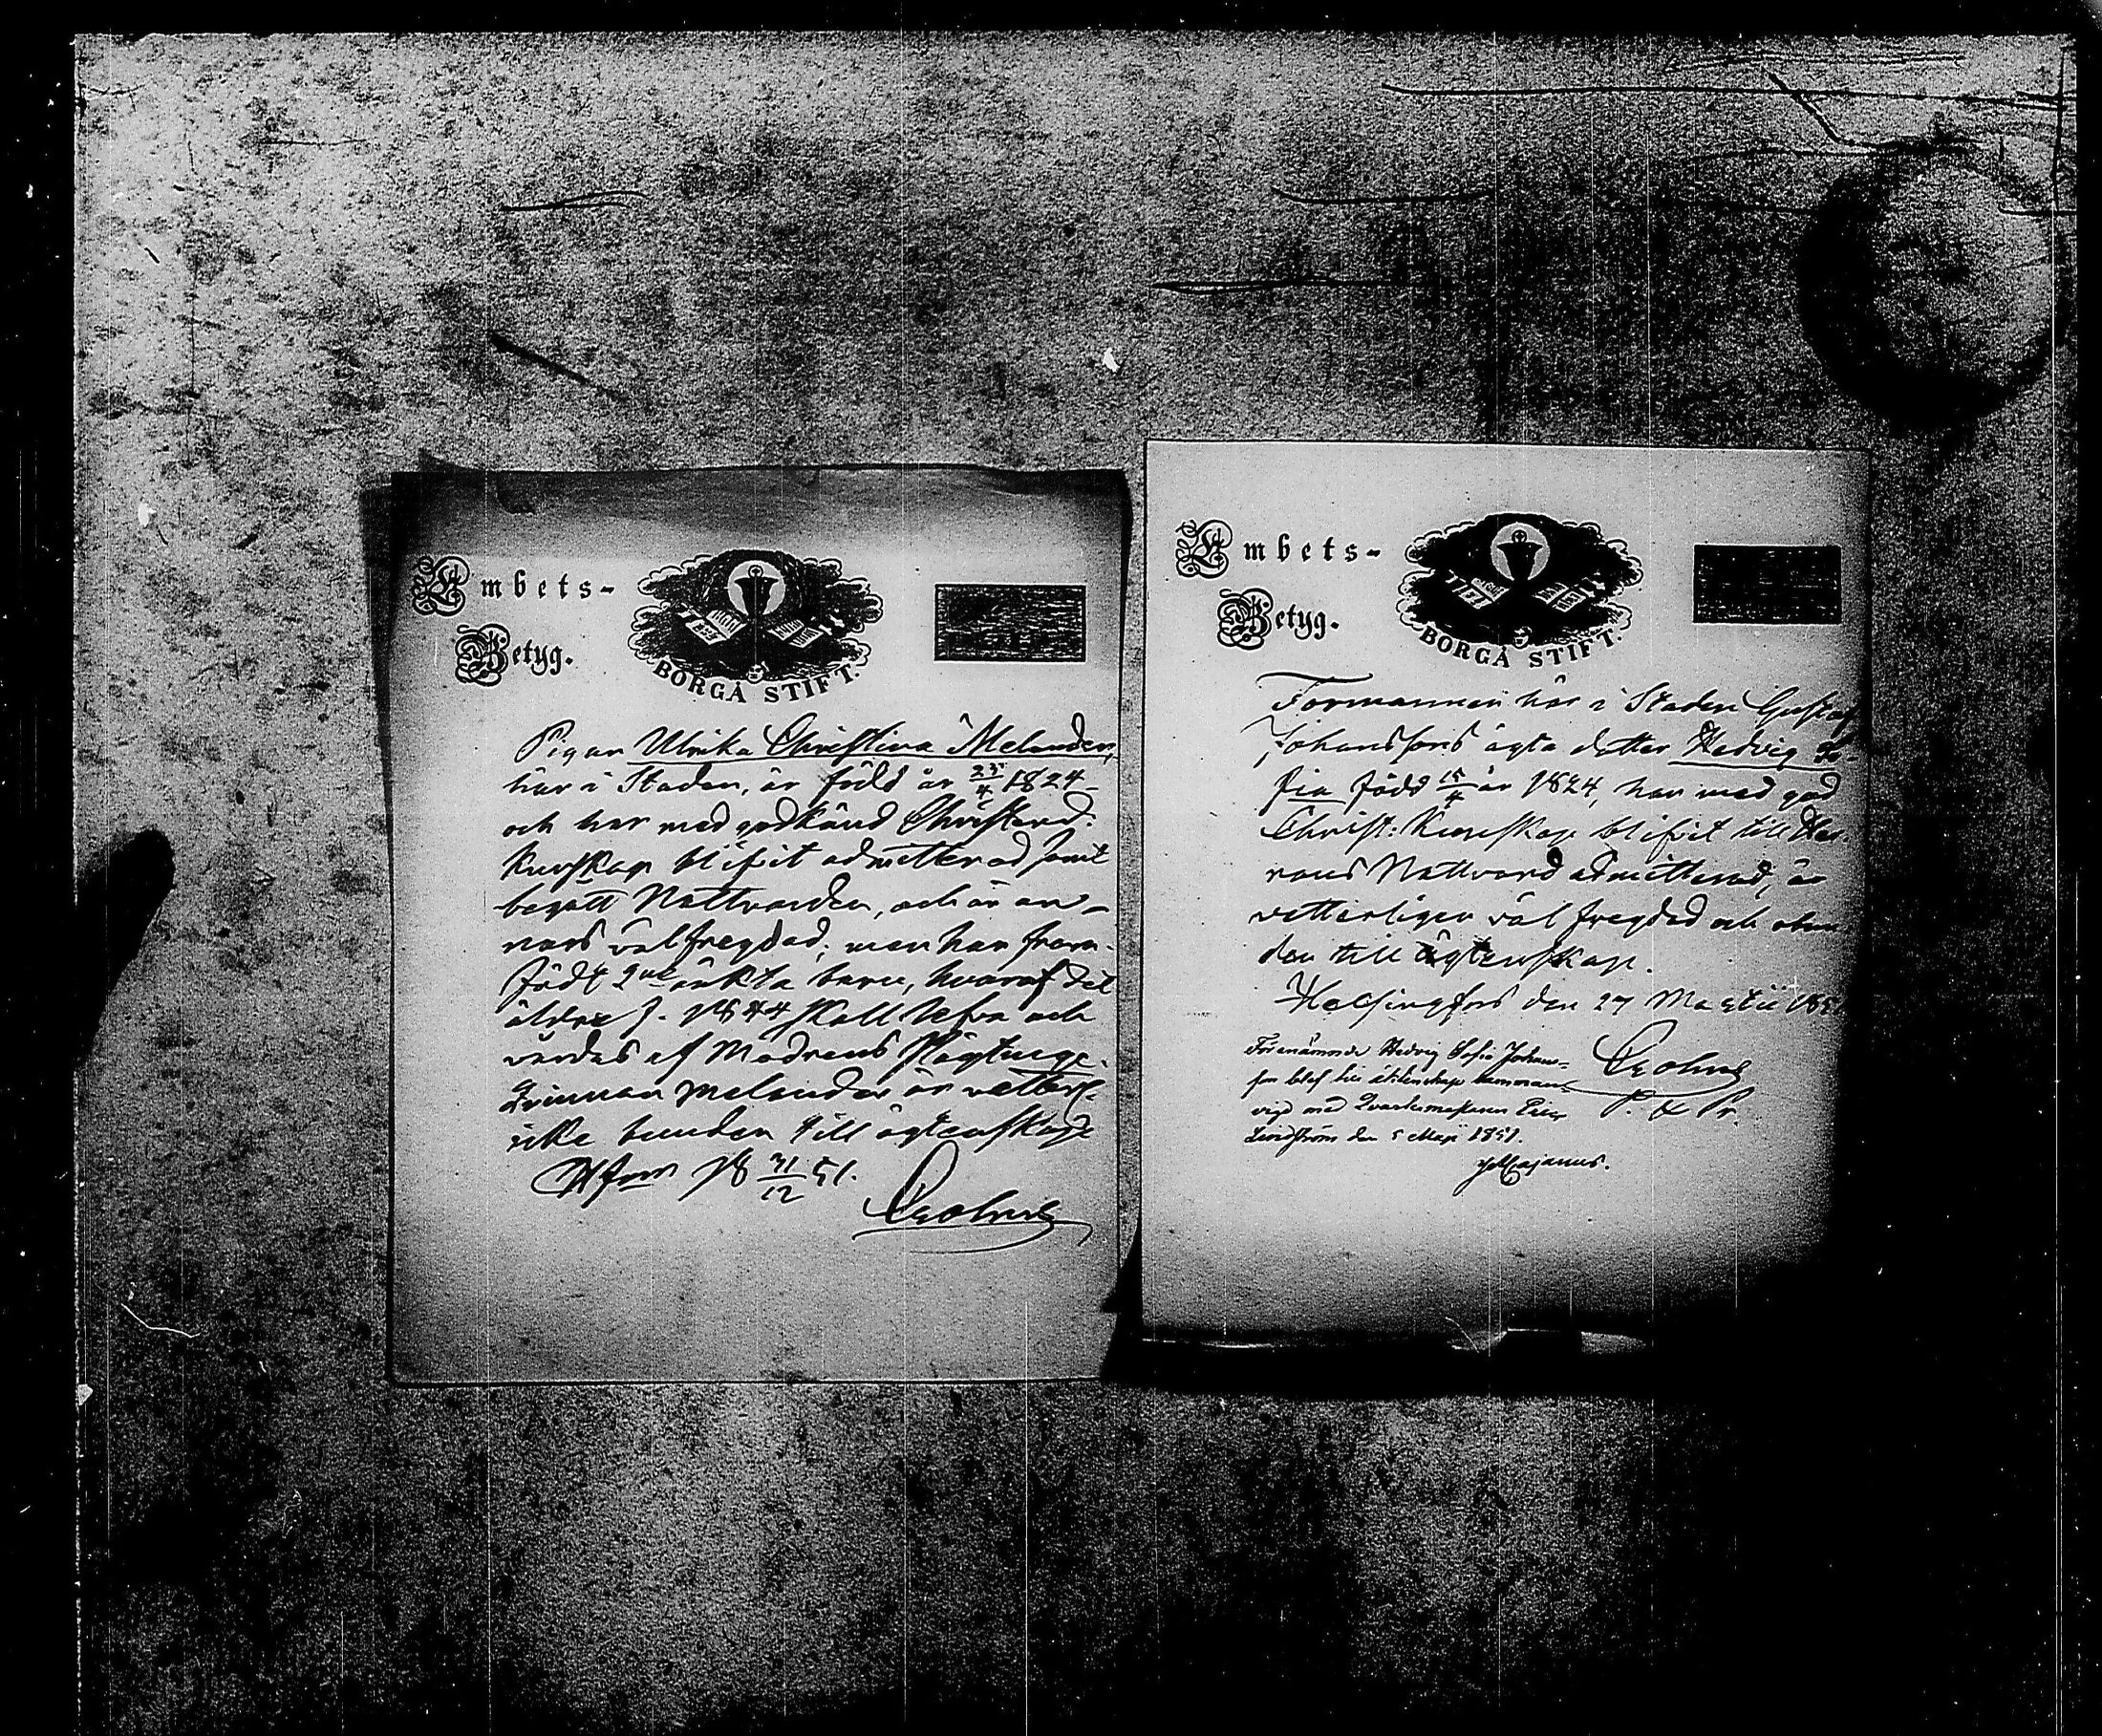 Embets-
Betyg.
BORGÅ STIFT.
Pigan Ulrika Christina Melander,
här i Staden, är född år 23/4 1824
och har med godkänd Christend:
kunskap blifvit admitterad samt
begått Nattvarden, och är an-
nars välfregdad, men har fram-
födt 2ne oäkta barn, hvaraf det
äldre f. 1844 skall lefva och
vårdas af Modrens slägtinge.
Qvinnan Melander är vetterl.
icke bunden till ägtenskap
H:fors 18 31/12 51.
Embets-
Betyg.
BORGÅ STIFT.
Formannen här i Staden Gustaf
Johanssons ägta dotter Hedvig So-
fia född 15/4 år 1824, har med god
Christ: Kunskap blifvit till Her-
rans Nattvard admitterad, är
vetterligen väl fregdad och obun
den till ägtenskap.
Helsingfors den 27 Martii 185
Förenämnde Hedvig Sofia Johans-
son blef här äktenskap samman-
vigd med Qvartermästaren
Lindström den 5 Maji 1851.
Cajanus.
P. &